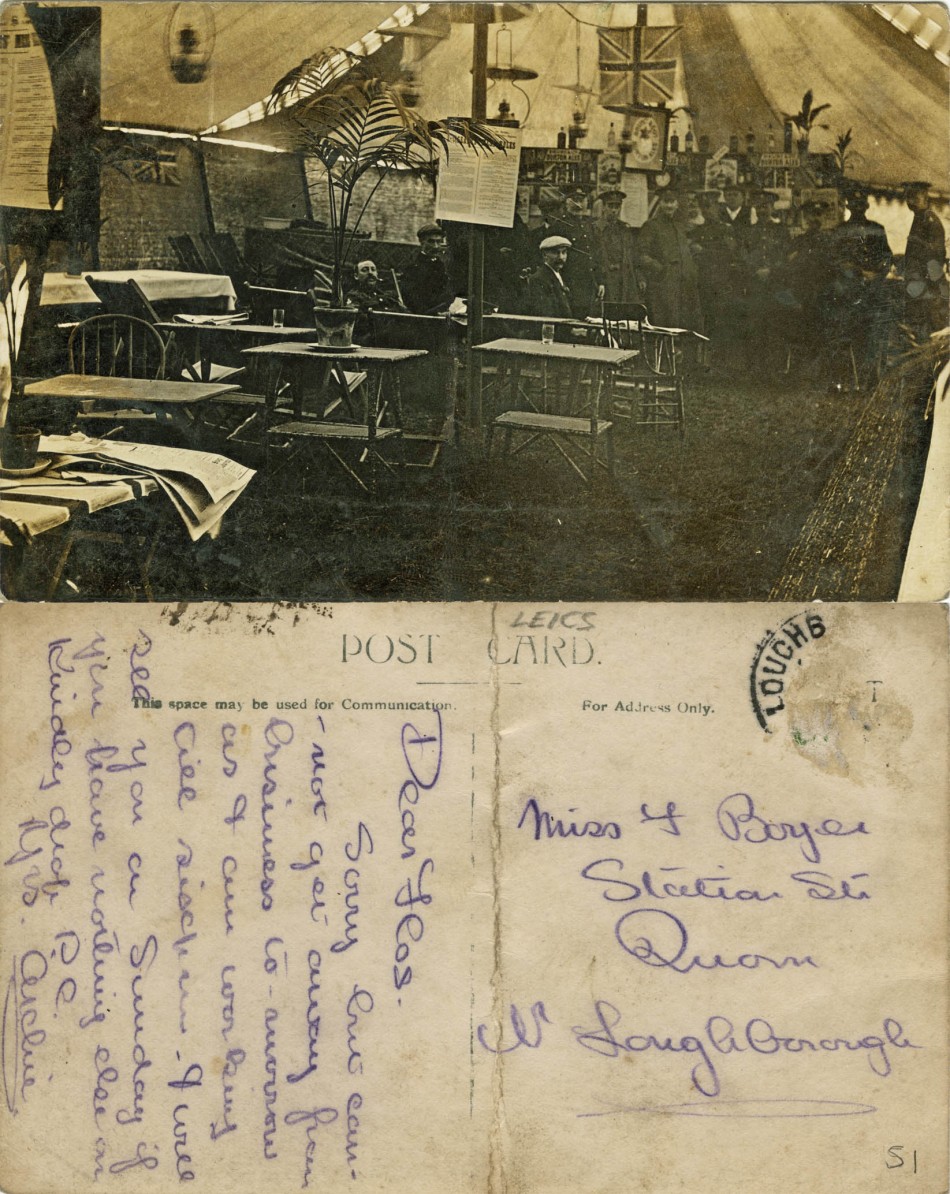 BURTON ALES
BURTON ALES
LEICS
POST CARD.
This space may be used for Communication.
For Address Only.
LOUGHB
T
Dear Flos.
Sorry but can-
-not get away from
business to-morrow
as I am working
till six p.m. I will
see you on Sunday if
you have nothing else on
Kindly drop P.C.
Yrs. Archie
Miss F Boyer
Station St
Quorn
Nr Loughborough
51